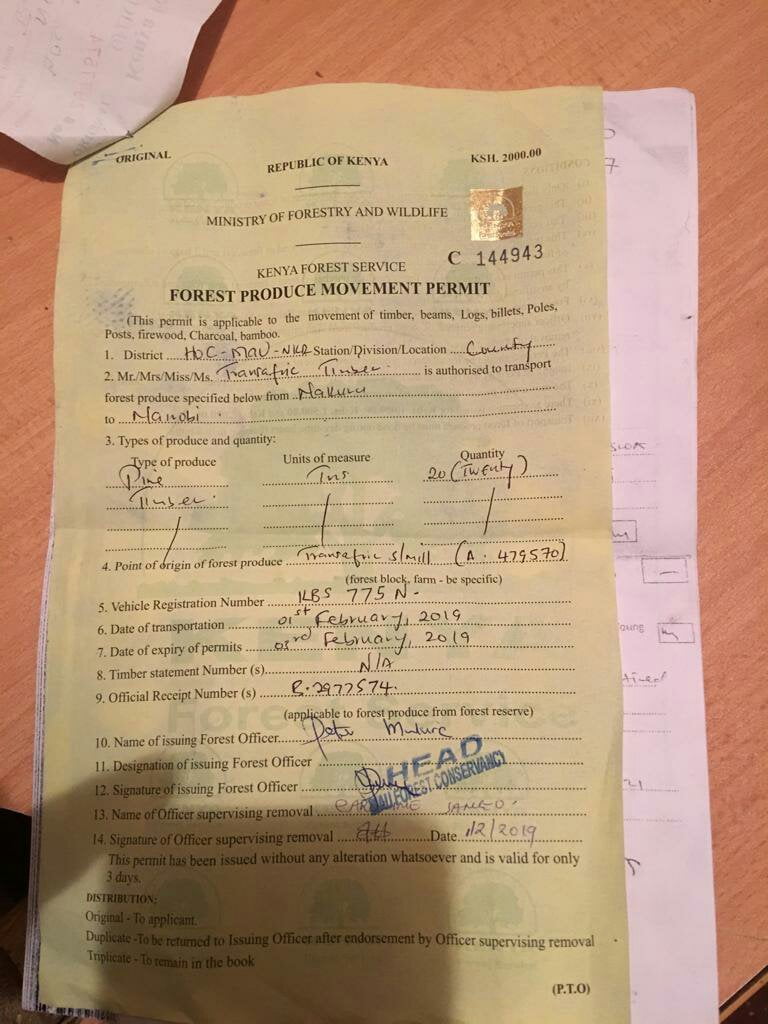 ORIGINAL
REPUBLIC OF KENYA
KSH. 2000.00
MINISTRY OF FORESTRY AND WILDLIFE
KENYA FOREST SERVICE
C 144943
FOREST PRODUCE MOVEMENT PERMIT
(This permit is applicable to the movement of timber, beams, Logs, billets, Poles,
Posts, firewood, Charcoal, bamboo.
1. District HOC-MAU-NKR Station/Division/Location County
2. Mr./Mrs/Miss/Ms. Transafric Timber is authorised to transport
forest produce specified below from Nakuru
to Nairobi
3. Types of produce and quantity:
Type of produce Units of measure Quantity
Pine Tns 20 (TWENTY)
Timber
4. Point of origin of forest produce Transafric s/mill (A. 479570)
(forest block, farm - be specific)
5. Vehicle Registration Number KBS 775 N
6. Date of transportation 01st February, 2019
7. Date of expiry of permits 03rd February, 2019
8. Timber statement Number (s) N/A
9. Official Receipt Number (s) B.2977574
(applicable to forest produce from forest reserve)
10. Name of issuing Forest Officer Peter
11. Designation of issuing Forest Officer HEAD
MAU FOREST CONSERVANCY
12. Signature of issuing Forest Officer
13. Name of Officer supervising removal
14. Signature of Officer supervising removal Date 1/2/2019
This permit has been issued without any alteration whatsoever and is valid for only
3 days.
DISTRIBUTION:
Original - To applicant.
Duplicate -To be returned to Issuing Officer after endorsement by Officer supervising removal
Triplicate - To remain in the book
(P.T.O)